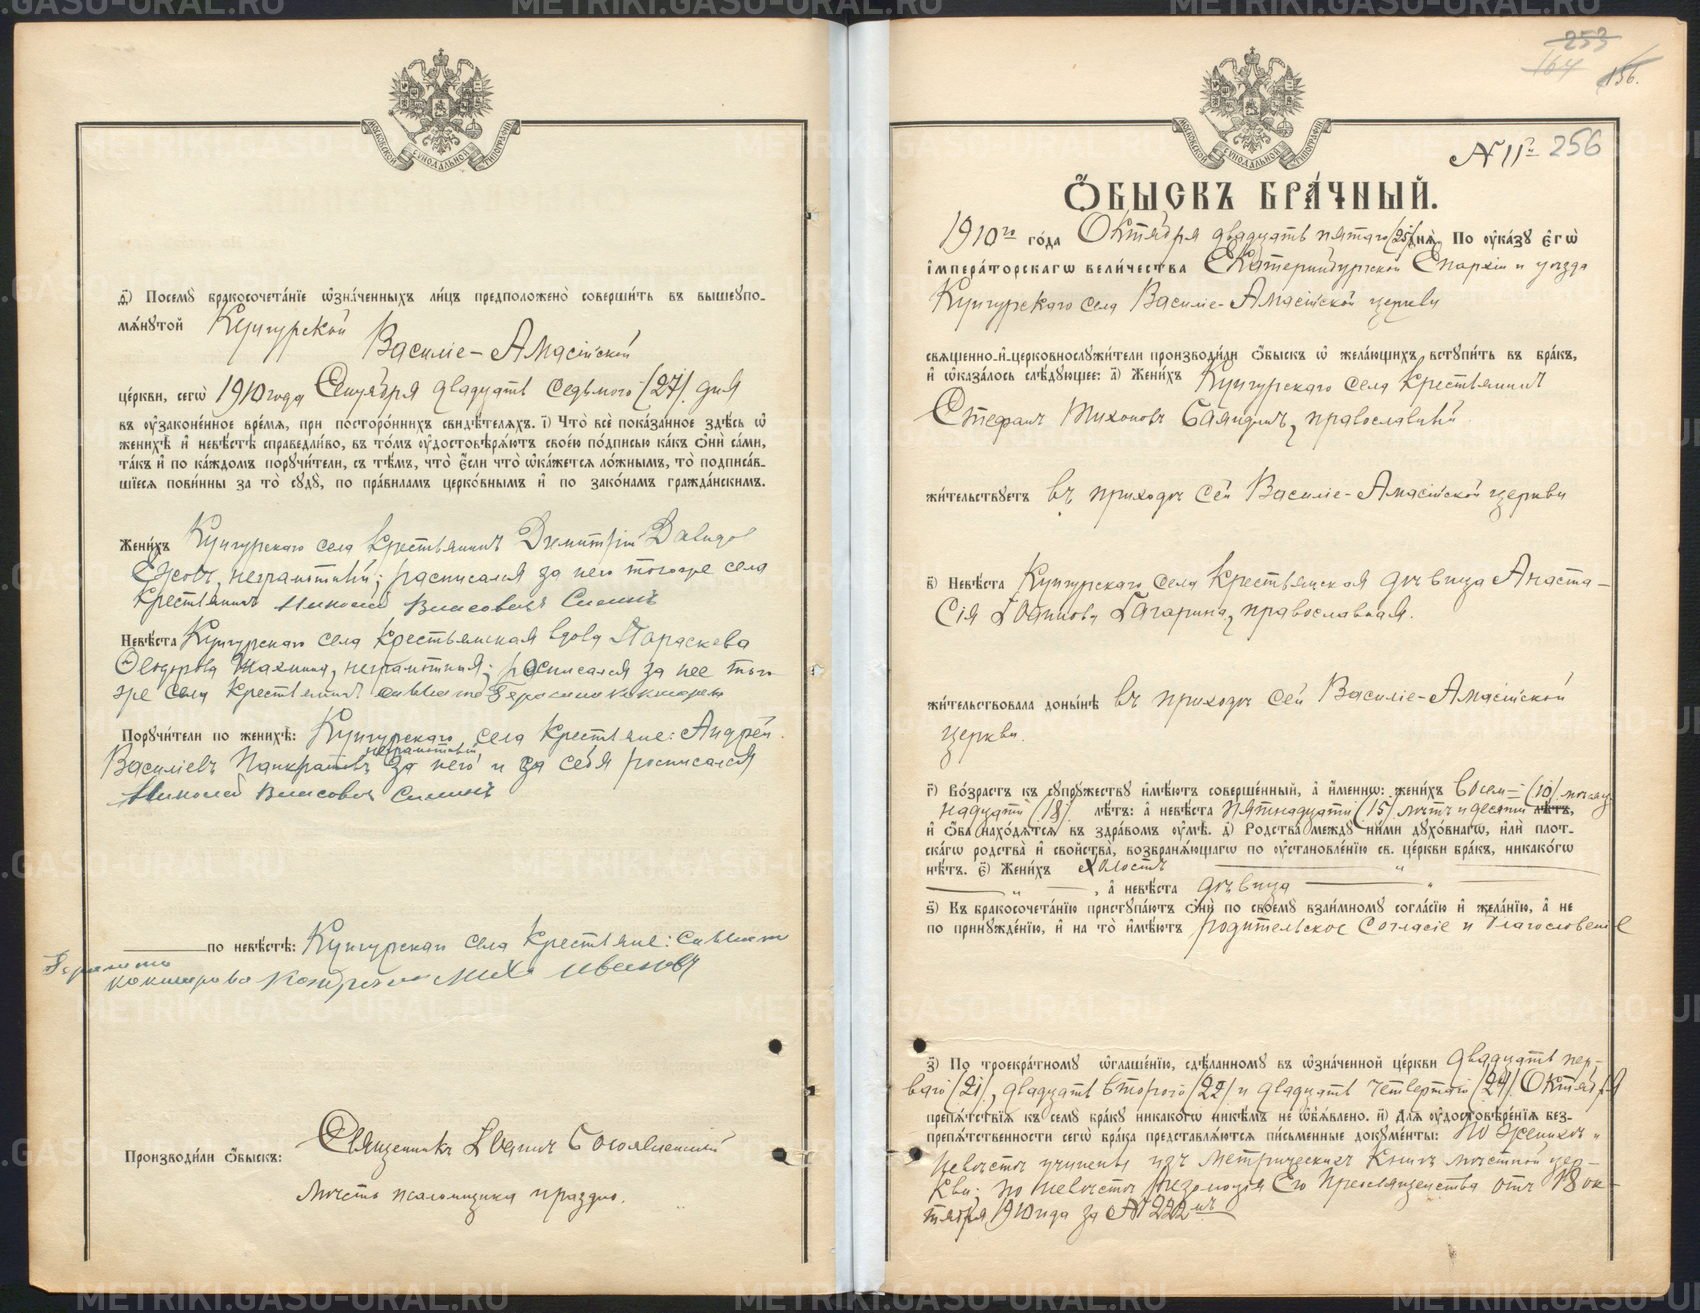 д҃) Посемꙋ̀ бракосочета́нїе ѡ҆зна́ченныхъ ли́цъ предположено̀ соверши́ть въ вышеꙋпо-
мѧ́нꙋтой Кунгурской
Василіе-Амасійской
це́ркви, сегѡ̀ 1910 года Сентября двадцать седьмого (27) дня
въ ᲂу҆зако́ненное вре́мѧ, при посторо́ннихъ свидѣ́телѧхъ. і҃) Что̀ всѐ пока́занное здѣ́сь ѡ҆
женихѣ̀ и҆ невѣ́стѣ справедли́во, въ то́мъ ᲂу҆достовѣрѧ́ютъ свое́ю по́дписью ка́къ ѻ҆нѝ са́ми,
та́къ и҆ по ка́ждомъ порꙋчи́тели, съ тѣ́мъ, что̀ є҆́сли что̀ ѡ҆ка́жетсѧ ло́жнымъ, то̀ подписа́в-
шїесѧ пови́нны за то̀ сꙋдꙋ̀, по пра́виламъ церко́внымъ и҆ по зако́намъ гражда́нскимъ.
Жени́хъ Кунгурскаго села крестьянинъ Димитрій Давидов
неграмотный; расписался за него тогоже села
крестьянинъ Николай Власовъ Силинъ
Невѣ́ста Кунгурскаго села крестьянская вдова Параскева
Ѳеодорова неграмотная; расписался за нее того
же села крестьянинъ
Порꙋчи́тели по женихѣ̀: Кунгурскаго села крестьяне: Андрей
неграмотный
Василіевъ Панкратовъ за него и за себя росписался
Николай Власовъ Силинъ
по невѣ́стѣ: Кунгурскаго села крестьяне:
Иванов
Производи́ли ѻ҆́быскъ: Священникъ Іоаннъ Богоявленскій
Мѣсто псаломщика праздно.
253
164
156.
№ 11й 256
Ѻ҆́БЫСКЪ БРА́ЧНЫЙ.
1910го го́да Октября двадцать пятаго (25) днѧ̀, По ᲂу҆ка́зꙋ є҆гѡ̀
і҆мпера́торскагѡ вели́чества Екатеринбургской Епархіи и уѣзда
Кунгурскаго села Василіе-Амасійской церкви
свѧще́нно-и҆-церковнослꙋжи́тели производи́ли ѻ҆́быскъ ѡ҆ жела́ющихъ встꙋпи́ть въ бра́къ,
и҆ ѡ҆каза́лось слѣ́дꙋющее: а҃) Жени́хъ Кунгурскаго села крестьянинъ
Стефанъ Тихоновъ православный
жи́тельствꙋетъ въ приходѣ сей Василіе-Амасійской церкви
в҃) Невѣ́ста Кунгурскаго села крестьянская дѣвица Анаста-
сія Іоаннова Гагарина, православная.
жи́тельствовала доны́нѣ въ приходѣ сей Василіе-Амасійской
церкви.
г҃) Во́зрастъ къ сꙋпрꙋ́жествꙋ и҆мѣ́ютъ соверше́нный, а҆ и҆́меннѡ: жени́хъ восем- (10) мѣсяц
надцати (18) лѣ́тъ: а҆ невѣ́ста пятнадцати (15) лѣтъ и десяти лѣ́тъ,
и҆ ѻ҆́ба нахо́дѧтсѧ въ здра́вомъ ᲂу҆мѣ̀. д҃) Родства̀ междꙋ̀ ни́ми дꙋхо́внагѡ, и҆лѝ плот-
ска́гѡ родства̀ и҆ сво́йства, возбранѧ́ющагѡ по ᲂу҆становле́нїю св. це́ркви бра́къ, никако́гѡ
нѣ́тъ. є҃) Жени́хъ холостъ „
„ , а҆ невѣ́ста дѣвица „
ѕ҃) Къ бракосочета́нїю пристꙋпа́ютъ ѻ҆нѝ по своемꙋ̀ взаи́мномꙋ согла́сїю и҆ жела́нїю, а҆ не
по принꙋжде́нїю, и҆ на то̀ и҆мѣ́ютъ родительское согласіе и благословеніе
з҃) По троекра́тномꙋ ѡ҆глаше́нїю, сдѣ́ланномꙋ въ ѡ҆зна́ченной це́ркви двадцать пер-
ваго (21), двадцать второго (22) и двадцать четвертаго (24) Октября
препѧ́тствїѧ къ семꙋ̀ бра́кꙋ никако́гѡ никѣ́мъ не ѡ҆б̾ѧ́влено. и҃) Длѧ ᲂу҆достовѣре́нїѧ без-
препѧ́тственности сегѡ̀ бра́ка представлѧ́ютсѧ пи́сьменные докꙋме́нты: по женихѣ и
невѣстѣ учинены изъ метрическихъ книгъ мѣстной цер-
кви; по невѣстѣ резолюція Его Преосвященства отъ 18 ок-
тября 1910 года за № 222мъ